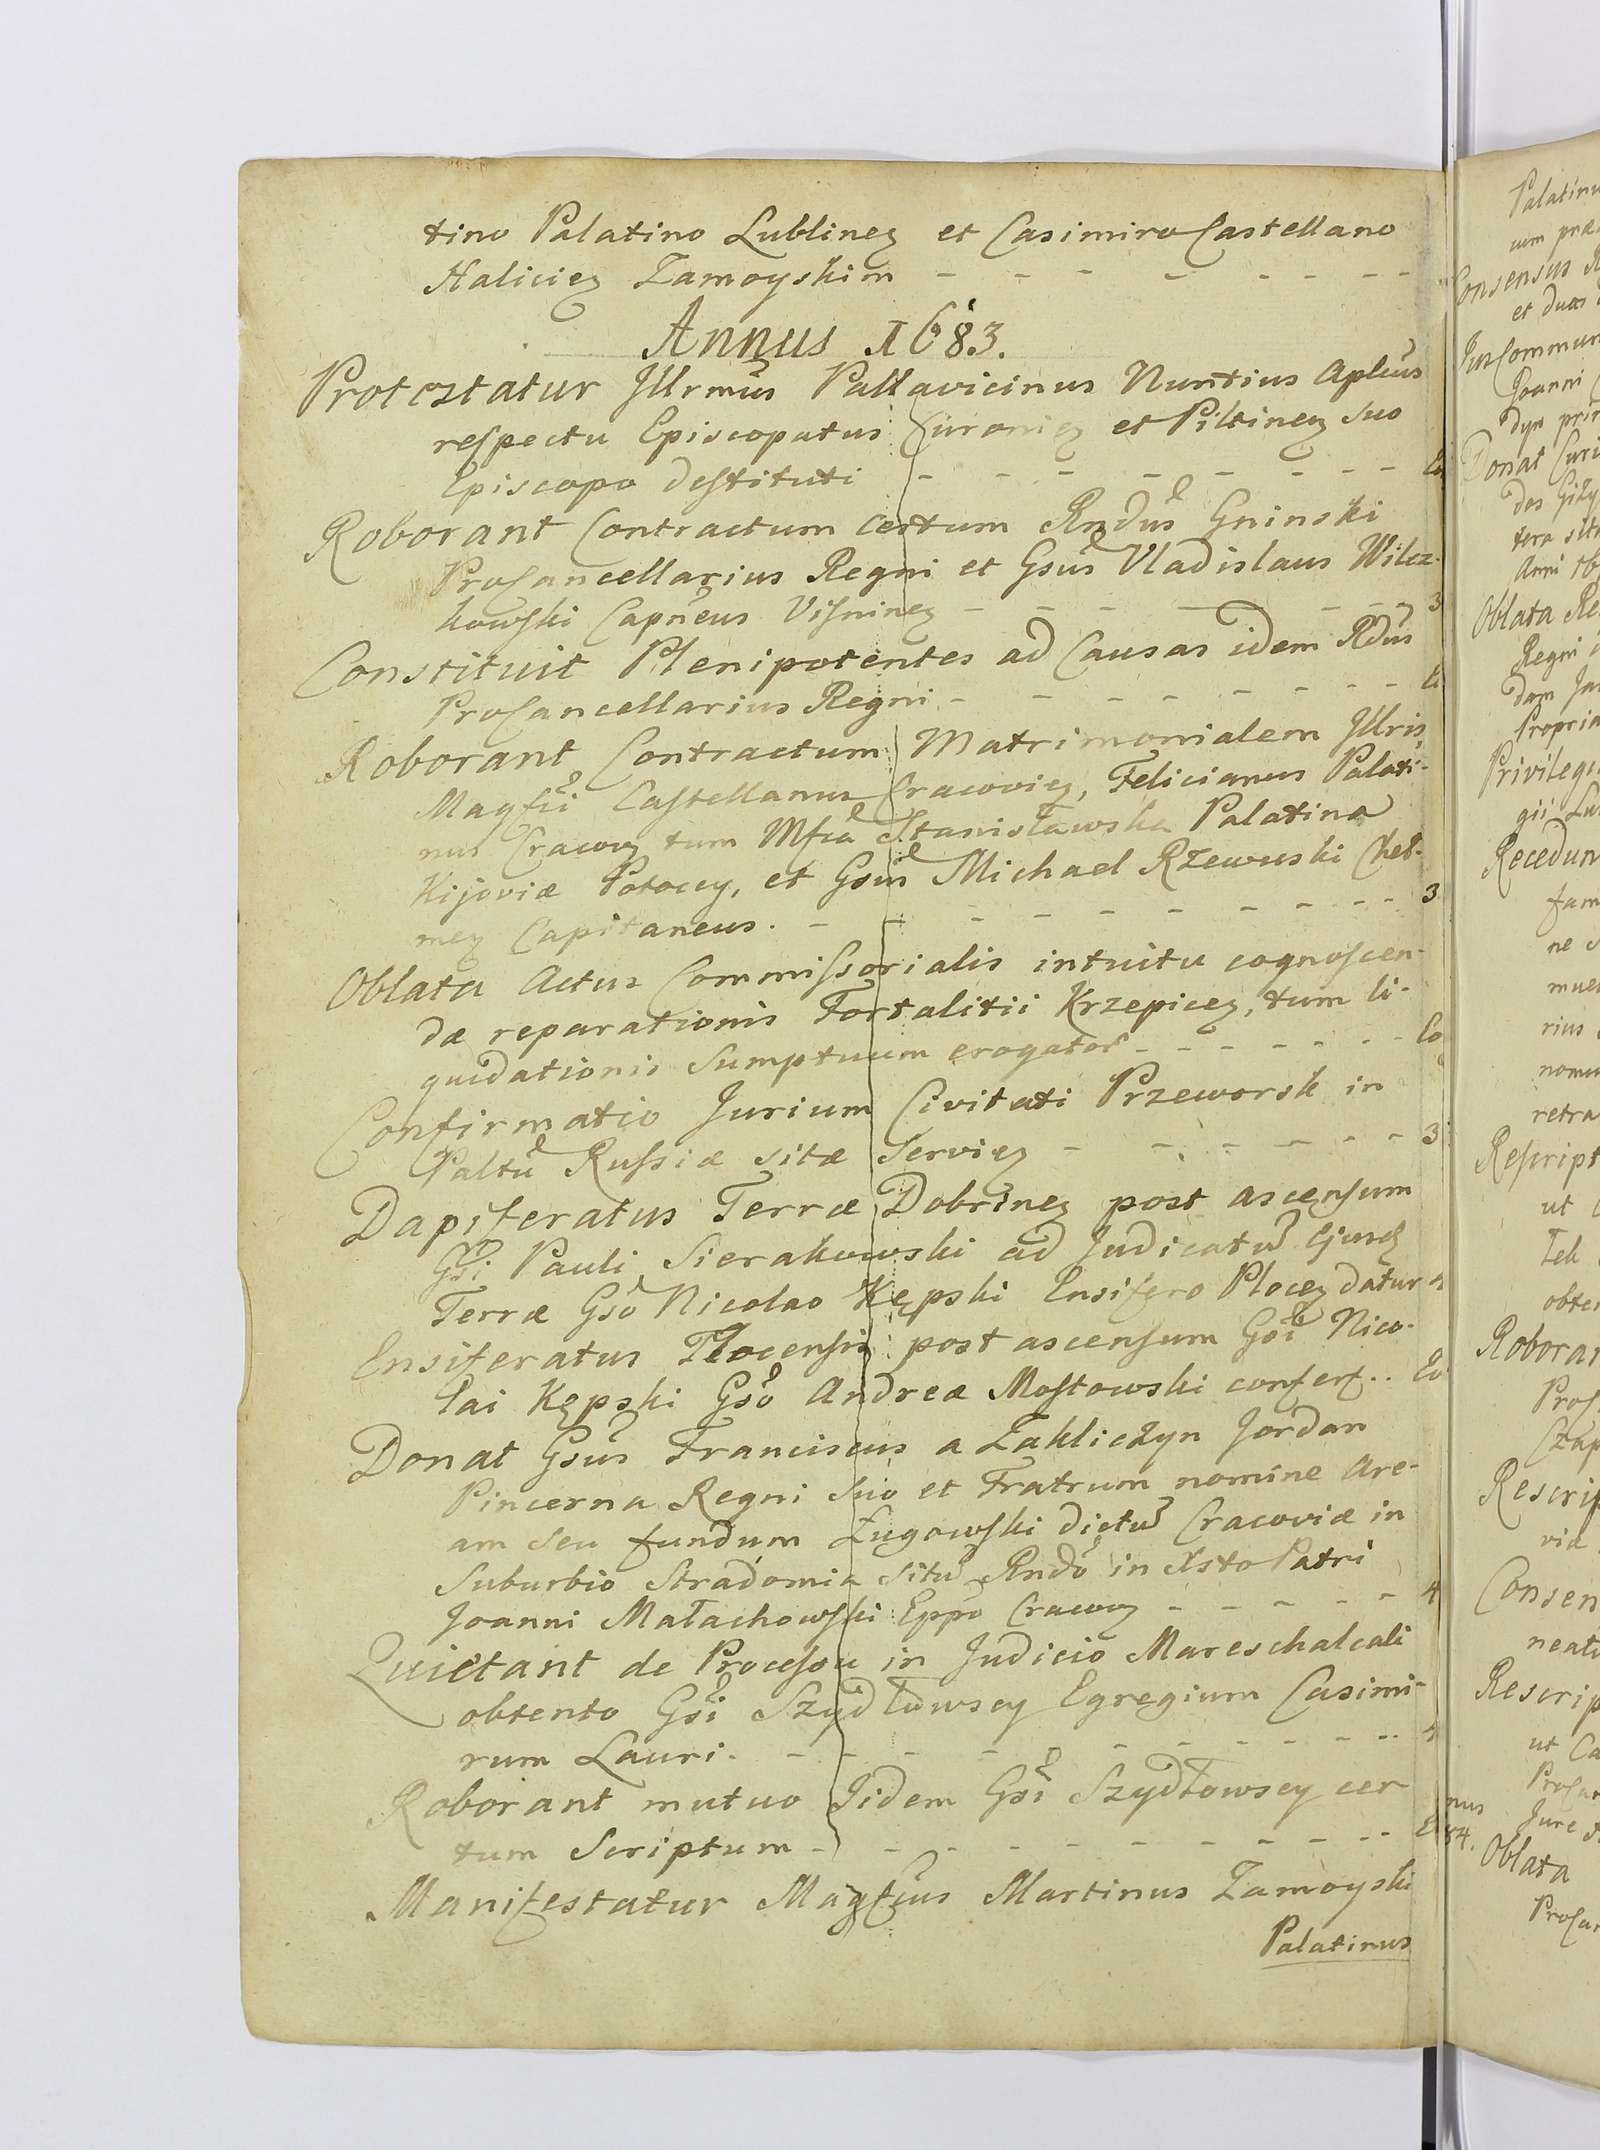 tino Palatino Lublineȝ et Casimiro Castellano
Halicieȝ Zamoyskim - - - - - - - -
Annus 1683.
Protestatur Jllrmus Pallavicinus Nuntius Aplcus
respectu Episcopatus Curonieȝ et Piltineȝ suo
Episcopo destituti - - - - - - - -
Roborant Contractum certum Rndus Gninski
ProCancellarius Regni et Gsus Vladislaus Wilcz-
kowski Capneus Visnineȝ - - - - - - 3
Constituit Plenipotentes ad Causas idem Rdus
ProCancellarius Regni - - - - - - - -
Roborant Contractum Matrimonialem Jllris
Magfci Castellanus Cracovieȝ, Felicianus Palati-
nus Cracovȝ tum Mfca Stanisławska Palatina
Kijoviæ Potoccy, et Gsus Michael Rzewuski Cheł-
meȝ Capitaneus. - - - - - - - - - 3
Oblata Actus Commissorialis intuitu cognoscen-
dæ reparationis Fortalitii Krzepiceȝ, tum li-
quidationis Sumptuum erogator - - - - - - - Eo
Confirmatio Jurium Civitati Przeworsk in
Paltu Russiæ sitæ Servieȝ - - - - - - 3
Dapiferatus Terræ Dobrineȝ post ascensum
Gsi Pauli Sierakowski ad Judicatu Ejusd
Terræ Gso Nicolao Kępski Ensifero Ploceȝ datur 4
Ensiferatus Plocensis post ascensum Gsi Nico-
lai Kępski Gso Andreæ Mostowski confert. . Eo
Donat Gsus Franciscus a Zakliczyn Jordan
Pincerna Regni suo et Fratrum nomine Are-
am seu fundum Ługowski dictu Cracoviæ in
Suburbio Stradomia situ Rndo in Xsto Patri
Joanni Małachowski Eppo Cracovȝ - - - - - 4
Quietant de Processu in Judicio Mareschalcali
obtento Gsi Szydłowscy Egregium Casimi-
rum Lauri. - - - - - - - - - - 4
Roborant mutuo Iidem Gsi Szydłowscy cer
tum Scriptum - - - - - - - - - - E
Manifestatur Magfcus Martinus Zamoyski
Palatinus
Palatinu
Consensus R
et duas
Jus Commun
Joanni
dyn
Donat Curi
Oblata Re
Regni
dam
Propria
Privilegi
gii Lu
Recedun
fam
ne
mue
rius
nomi
retra
Rescript
ut
obte
Roborar
Prof
Rescrip
viæ
Consen
neat
Rescrip
ut Ca
nus
84.
Jure
Oblata